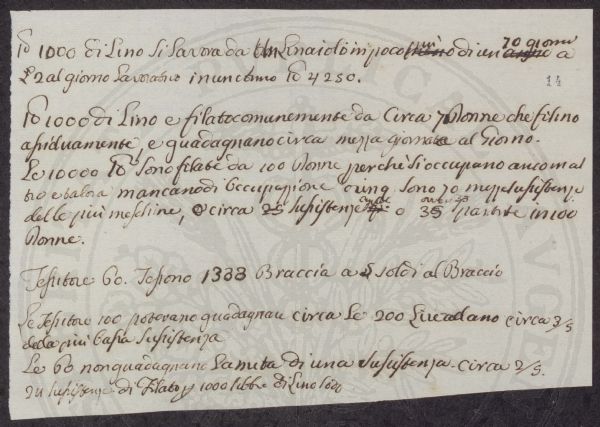 lb 1000 di Lino si Lavora da Un Linaiolo in poco più di un 70 giorni a
£ 2 al giorno Lavorativo in un et uno lb 4250.
14
lb 1000 di Lino e filato comunemente da Circa 7 Donne che filino
assiduamente, e guadagnano circa mezza giornata al Giorno.
Le 10000 lb sono filate da 100 Donne perche si occupano anco in al
tro e talora mancano di occupazione sono 70 mezze sussistenze
delle più meschine, o circa 25 sussistenze o 35 partite in 100
Donne.
Tessitore 60. Tessono 1388 Braccia a 5 soldi al Braccio
Le Tessitore 100 potevano guadagnare circa Le 200 circa 3/5
della più bassa sussistenza
Le 60 non guadagnano la meta di una sussistenza circa 2/5.
sussistenze di Filato 1000 libbre di Lino